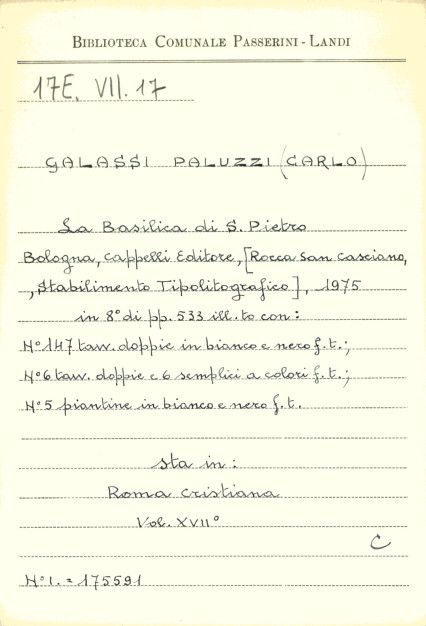 BIBLIOTECA COMUNALE PASSERINI - LANDI
17E. VII. 17
GALASSI PALUZZI (CARLO)
La Basilica di S. Pietro
Bologna, Cappelli Editore, [Rocca San Casciano,
, Stabilimento Tipolitografico], 1975
in 8° di pp. 533 ill.to con:
N° 147 tav. doppie in bianco e nero f.t.;
N° 6 tav. doppie e 6 semplici a colori f.t.;
N° 5 piantine in bianco e nero f.t.
sta in:
Roma cristiana
Vol. XVII°
C
N° I. = 175591